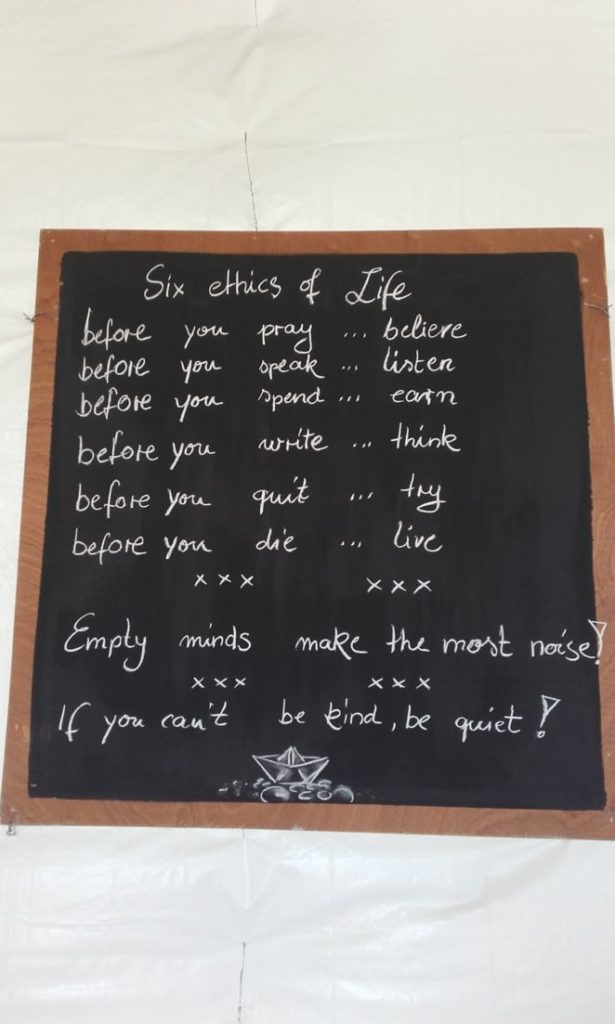 Six ethics of Life
before you pray ... believe
before you speak ... listen
before you spend ... earn
before you write ... think
before you quit ... try
before you die ... live
x x x x x x
Empty minds make the most noise!
x x x x x x
If you can't be kind, be quiet!